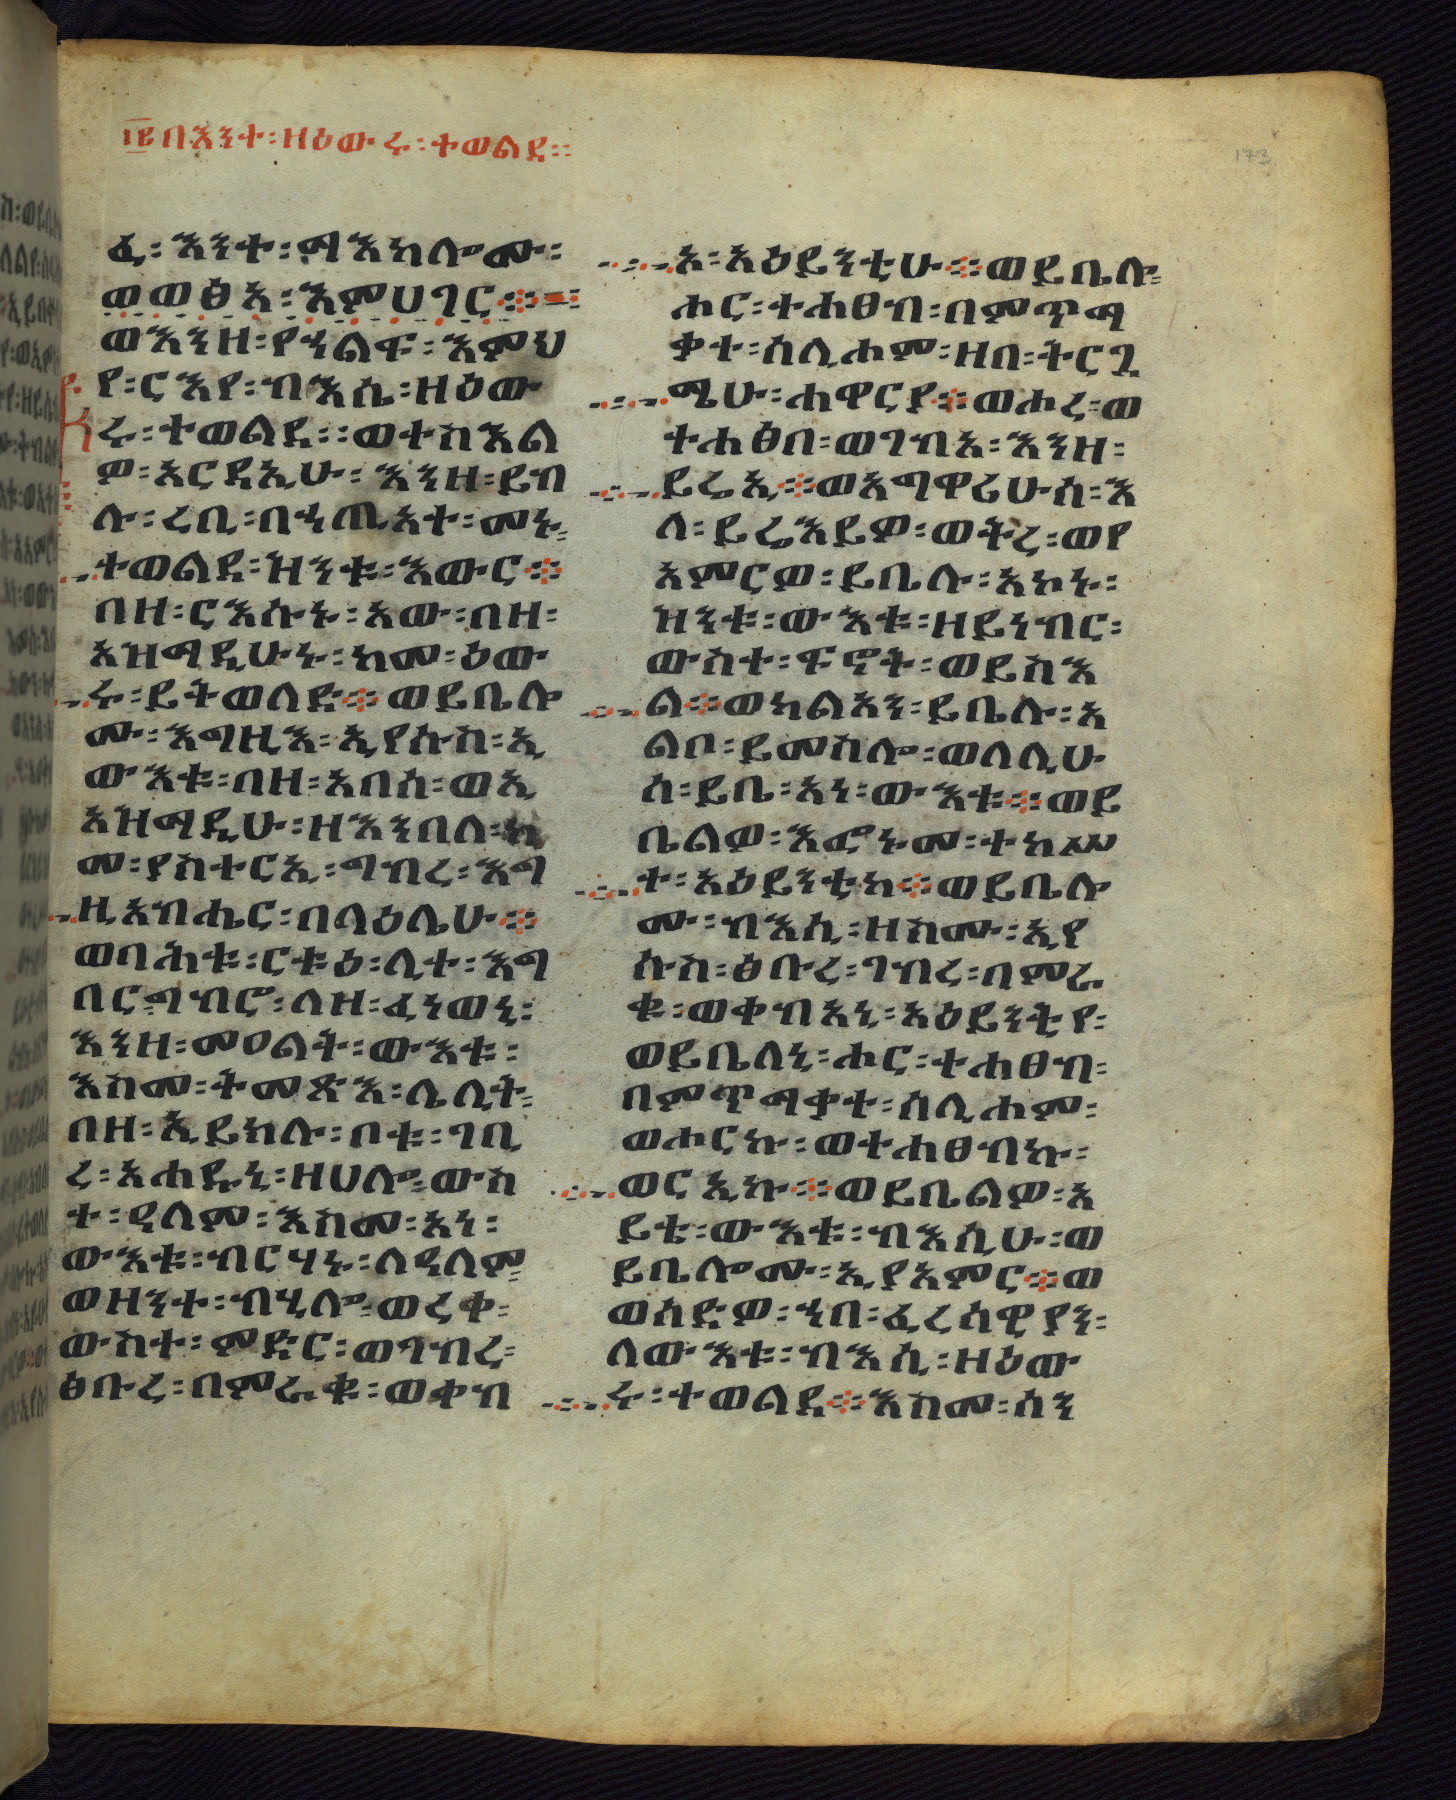 ፲፪በእንተ፡ዘዕውሩ፡ተወልደ፡፡
173
ፈ፡እንተ፡ማእከሎሙ፡
ወወፅአ፡እምህገር፨
ወእንዘ፡የኃልፍ፡እምህ
የ፡ርእየ፡ብእሴ፡ዘዕው
ሩ፡ተወልደ፡፡ወተስእል
ዎ፡አርዳኢሁ፡እንዘ፡ይብ
ሉ፡ረቢ፡በኃጢአተ፡መኑ፡
ተወልደ፡ዝንቱ፡እውር፨
በዘ፡ርእሱኑ፡አው፡በዘ፡
አዝማዲሁኑ፡ከመ፡ዕው
ሩ፡ይትወለድ፨ወይቤሎ
ሙ፡እግዚእ፡ኢየሱስ፡ኢ
ውእቱ፡በዘ፡አበሰ፡ወኢ
አዝማዲሁ፡ዘእንበለ፡ከ
መ፡ያስተርኢ፡ግብረ፡እግ
ዚአብሔር፡በላዕሌሁ፨
ወባሕቱ፡ርቱዕ፡ሊተ፡እግ
በር፡ግብሮ፡ለዘ፡ፈነወኒ፡
እንዘ፡መዐልት፡ውእቱ፡
እስመ፡ትመጽእ፡ሌሊት፡
በዘ፡ኢይክሉ፡ቦቱ፡ገቢ
ረ፡አሐዱኒ፡ዘሀሎ፡ውስ
ተ፡ዓለም፡እስመ፡አነ፡
ውእቱ፡ብርሃኑ፡ለዓለም፡
ወዘንተ፡ብሂሎ፡ወረቀ፡
ውስተ፡ምድር፡ወገብረ፡
ፅቡረ፡በምራቁ፡ወቀብ
አ፡አዕይንቲሁ፨ወይቤሎ፡
ሐር፡ተሐፀብ፡በምጥማ
ቃተ፡ሰሊሖም፡ዘበ፡ትርጓ
ሜሁ፡ሐዋርያ፨ወሖረ፡ወ
ተሐፅበ፡ወገብአ፡እንዘ፡
ይሬኢ፨ወአግዋሪሁሰ፡እ
ለ፡ይሬእይዎ፡ወትረ፡ወየ
አምርዎ፡ይቤሉ፡አኮኑ፡
ዝንቱ፡ውእቱ፡ዘይነብር፡
ውስተ፡ፍኖት፡ወይስእ
ል፨ወካልአን፡ይቤሉ፡አ
ልቦ፡ይመስሎ፡ወለሊሁ
ሰ፡ይቤ፡አነ፡ውእቱ፨ወይ
ቤልዎ፡እፎኑመ፡ተከሥ
ተ፡አዕይንቲከ፨ወይቤሎ
ሙ፡ብእሲ፡ዘስሙ፡ኢየ
ሱስ፡ፅቡረ፡ገብረ፡በምራ
ቁ፡ወቀብአኒ፡አዕይንቲየ፡
ወይቤለኒ፡ሖር፡ተሐፀብ፡
በምጥማቃተ፡ሰሊሖም፡
ወሖርኩ፡ወተሐፀብኩ፡
ወርኢኩ፨ወይቤልዎ፡አ
ይቴ፡ውእቱ፡ብእሲሁ፡ወ
ይቤሎሙ፡ኢያአምር፨ወ
ወሰድዎ፡ኀበ፡ፈሪሳዊያን፡
ለውእቱ፡ብእሲ፡ዘዕው
ሩ፡ተወልደ፨እስመ፡ሰን